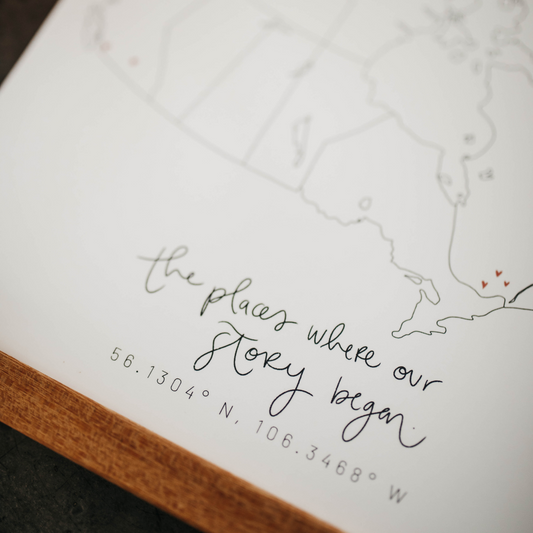 the places where our
story began.
56.1304° N, 106.3468° W